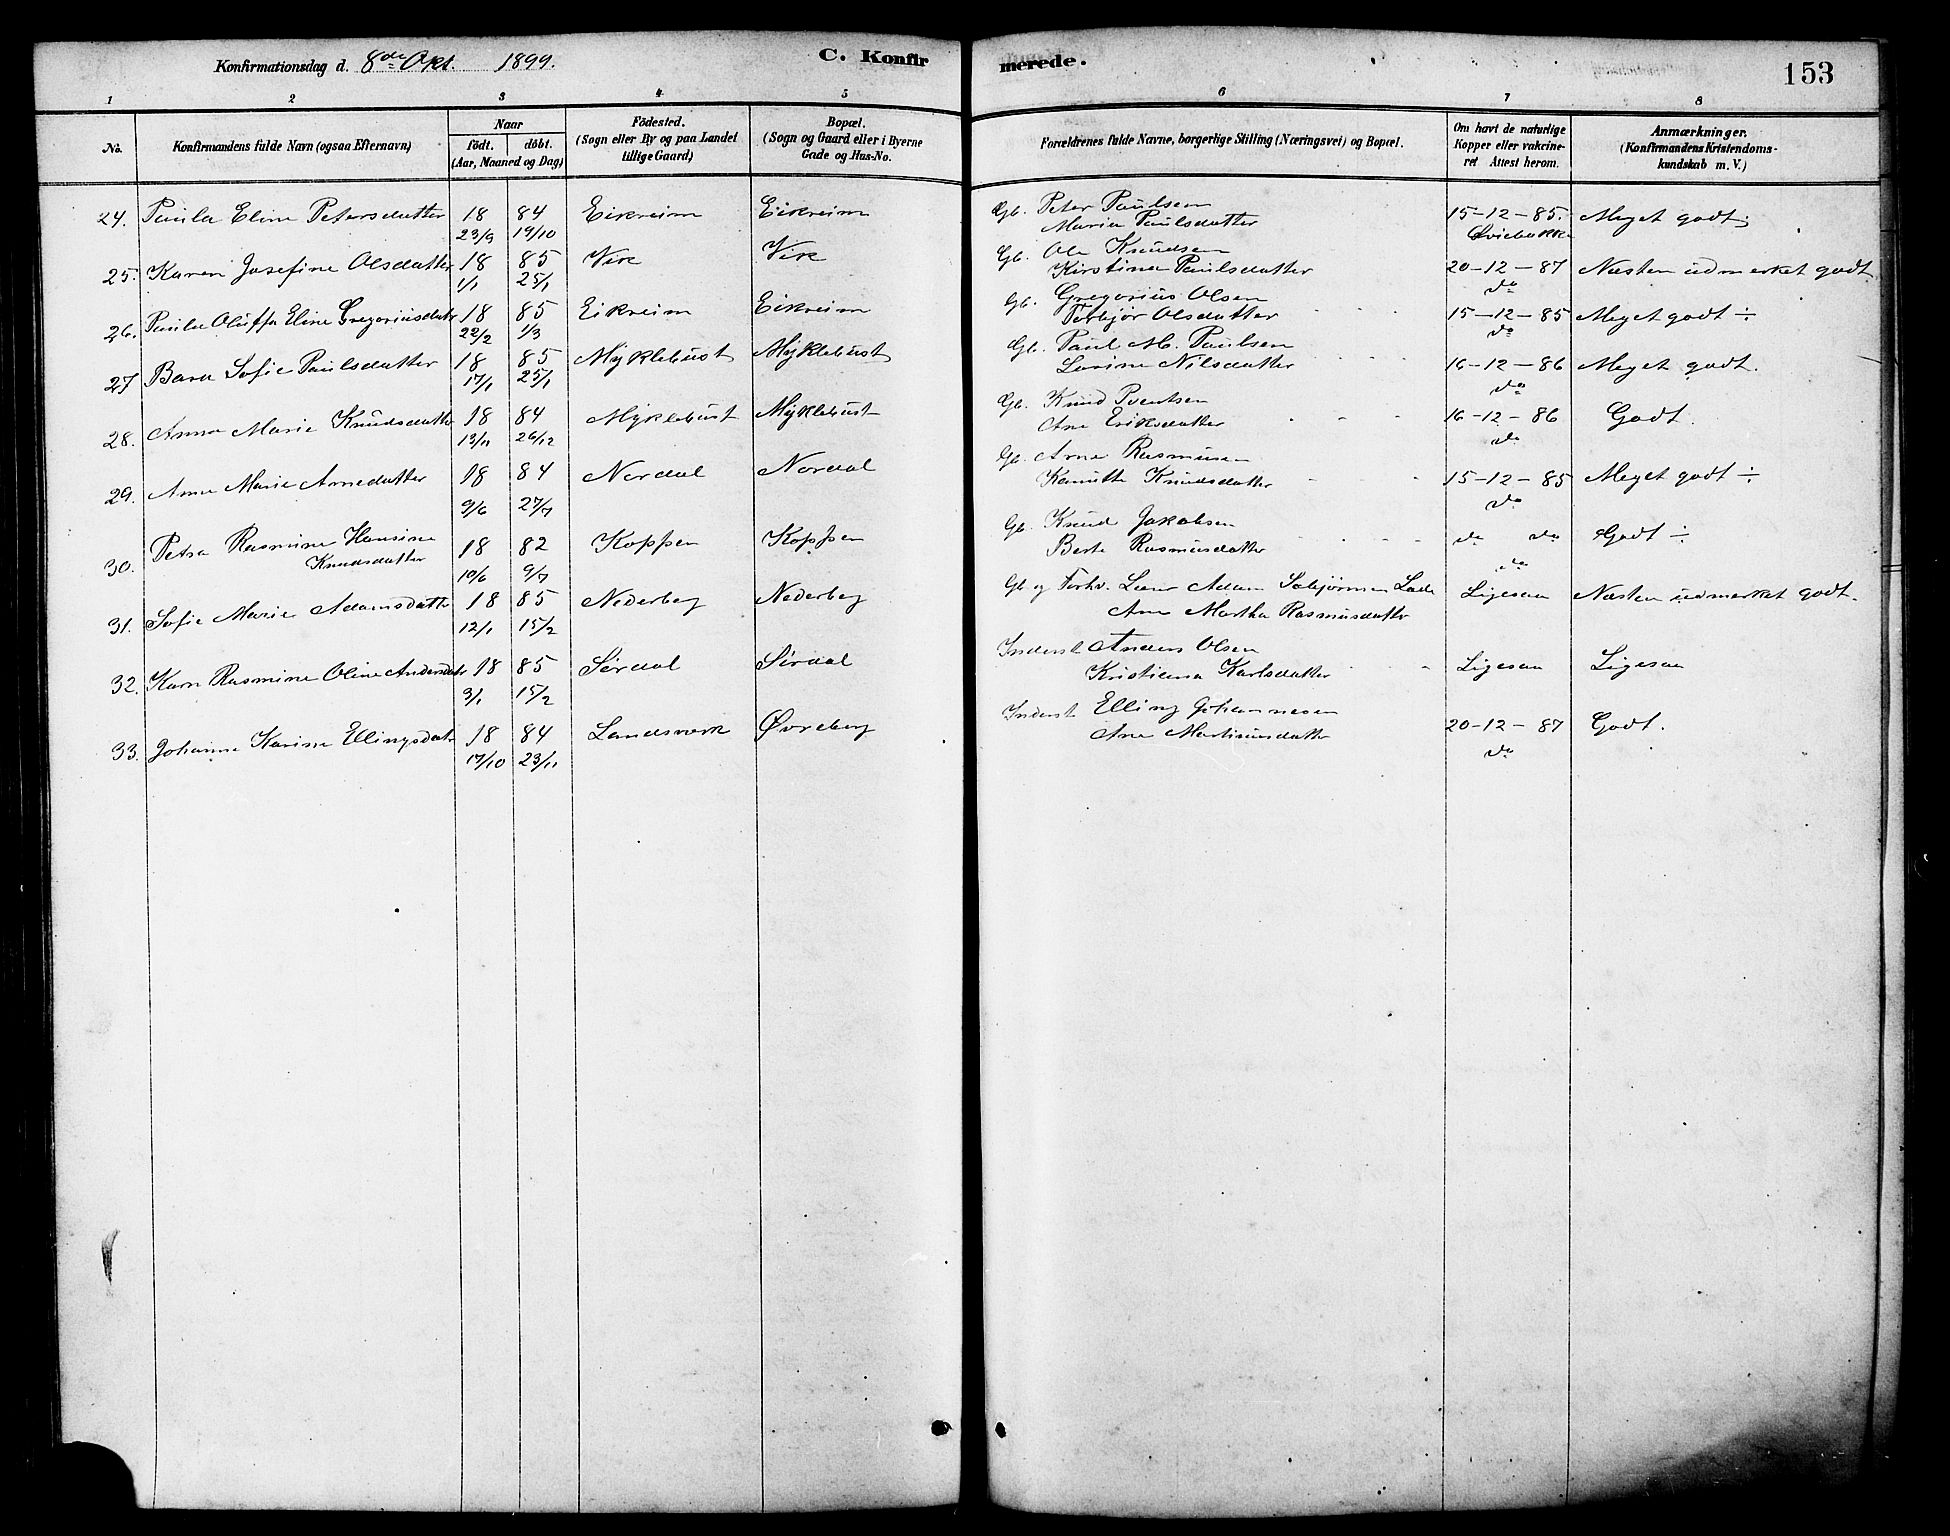 Konfirmationsdag d. 8de Okt. 1899.
C. Konfirmerede.
153
1 2 3 4 5 6 7 8
No.
Konfirmandens fulde Navn (ogsaa Efternavn)
Naar
födt. döbt.
(Aar, Maaned og Dag)
Födested.
(Sogn eller By og paa Landet
tillige Gaard)
Bopæl.
(Sogn og Gaard eller i Byerne
Gade og Hus-No.
Forældrenes fulde Navne, borgerlige Stilling (Næringsvei) og Bopæl.
Om havt de naturlige
Kopper eller vakcine-
ret Attest herom.
Anmærkninger.
(Konfirmandens Kristendoms-
kundskab m. V.)
24. Paula Eline Petersdatter 18 84 Eikreim Eikreim Gb. Peter Paulsen 15-12-85. Meget godt.
23/9 19/10 Maria Paulsdatter
25. Karen Josefine Olsdatter 18 85 Vik Vik Gb. Ole Knudsen 20-12-87 Næsten udmerket godt
1/1 25/1 Kirstine Paulsdatter do
26. Paula Oluffa Eline Gregoriusdatr 18 85 Eikreim Eikreim Gb. Gregorius Olsen 15-12-85 Meget godt ÷
22/2 1/3 Torbjør Olsdatter do
27 Bara Sofie Paulsdatter 18 85 Myklebust Myklebust Gb. Paul M. Paulsen 16-12-86 Meget godt.
17/1 25/1 Lovine Nilsdatter do
28. Anna Marie Knudsdatter 18 84 Myklebust Myklebust Gb. Knud Sventsen 16-12-86 Godt.
13/11 26/12 Ane Eriksdatter do
29. Anna Marie Arnedatter 18 84 Nordal Nordal Gb. Arne Rasmusen 15-12-85 Meget godt ÷
9/6 27/7 Kanutte Knudsdatter do
30. Petra Rasmine Hansine 18 82 Koppen Koppen Gb. Knud Jakobsen do do Godt ÷
Knudsdatter 10/6 9/7 Berte Rasmusdatter do
31. Sofie Marie Adamsdattr 18 85 Nederberg Nederberg Gb og Forhv. Adam Ligesaa Næsten udmerket godt.
12/1 15/2 Ane Martha Rasmusdatter
32. Karn Rasmine Oline Andersdatr 18 85 Sørdal Sørdal Inderst Anders Olsen Ligesaa Ligesaa
3/1 15/2 Kristiena Karlsdatter
33. Johanne Karine Ellingsdatr 18 84 Landsverk Øvreberg Inderst Elling Johannesen 20-12-87 Godt.
17/10 23/11 Ane Martinusdatter do